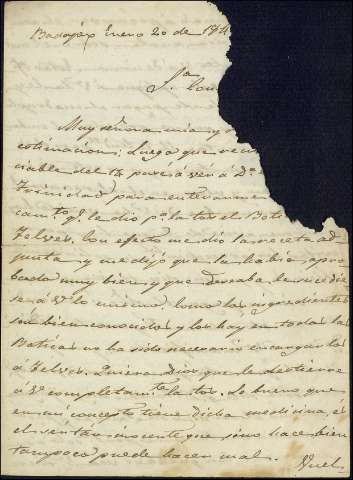 Badajoz Enero 20 de 184
S.ª Con
Muy señora mia y
estimacion: Luego que reci
ciable del 13 pasé á ver á D.ª
Trinidad para enterarme
cam.to q.e le dio p.a la tos el Boti
Felves. Con efecto me dio la receta ad-
junta y me dijo que la habia apro-
bado muy bien y que deseaba le sucedie-
se á V. lo mismo. Como los ingredientes
son bien conocidos y los hay en todas las
Boticas no ha sido necesario encargarlos
á Felves. Quiera Dios que le destierre
á V. completam.te la tos. Lo bueno que
en mi concepto tiene dicha medicina, es
el ser tan inocente que sino hace bien
tampoco puede hacer mal.
Vuel-